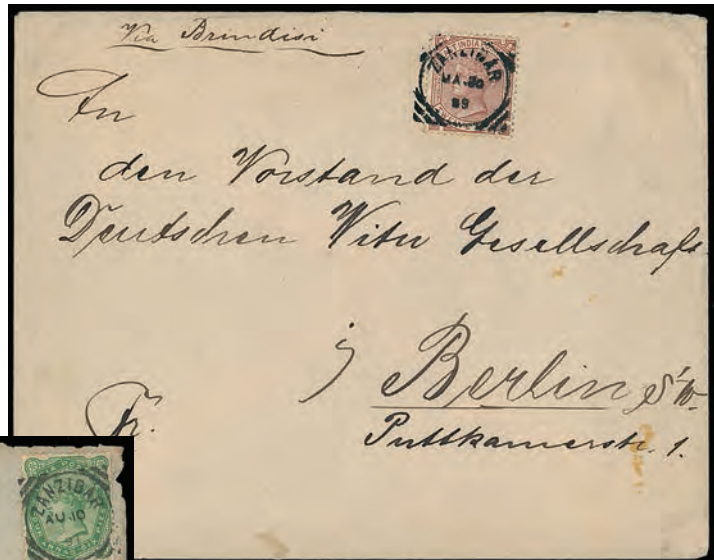 Via Brindisi
INDIA
ZANZIBAR
JA 30
89
An
den Vorstand der
Deutschen Witu Gesellschaft
i/ Berlin S.W.
Fr.
Puttkamerstr. 1.
ZANZIBAR
AU 10